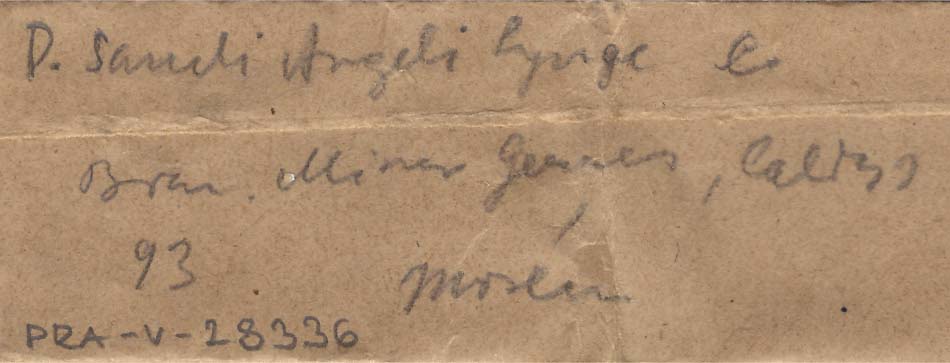 D. Sancti Angeli Lynge c.
Bras. Minas Geraes, Caldas
93 Mosén
PRA-V-28336